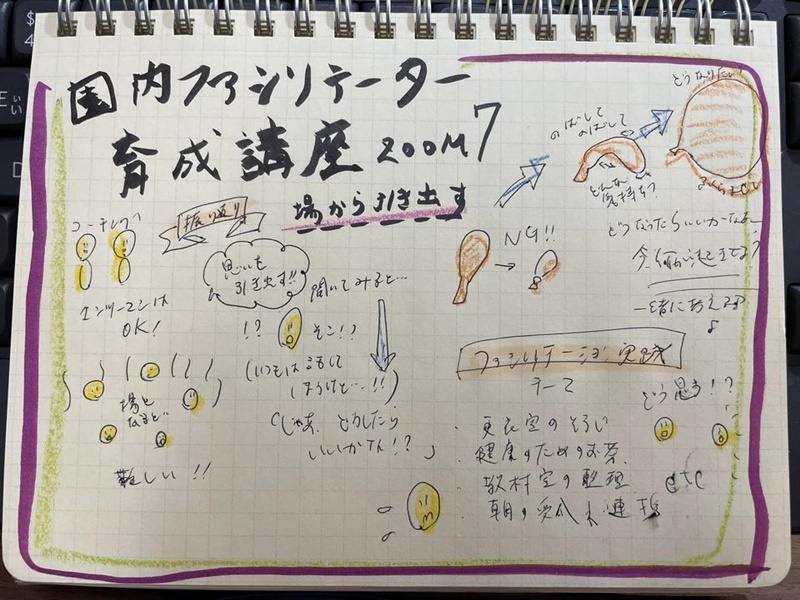 園内ファシリテーター
育成講座 ZOOM7
場から引き出す
コーチング
振り返り
エンツーマンは
OK!
思いを
引き出す!!
聞いてみると…
!? そこ!?
(いつもは話して
しまうけど…!!)
「じゃあ、どうしたら
いいかなぁ!?」
場と
なると…
難しい!!
のばして
のばして
どんな
気持ち?
どうなりたい
NG!!
どうなったらいいかなぁ
今何が起きてる?
一緒に考える
ファシリテーション実践
テーマ
どう思う!?
・更衣室のそうじ
・健康のためのお茶
・教材室の整理
・朝の受入れ連携
etc